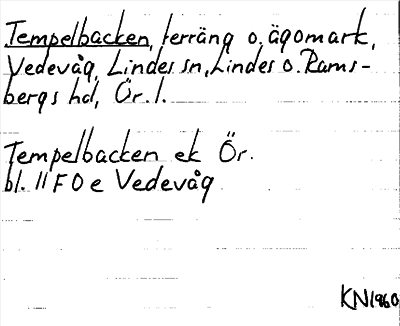 Tempelbacken, terräng o. ägomark,
Vedevåg, Lindes sn, Lindes o. Rams-
bergs hd, Ör. l.
Tempelbacken ek Ör.
bl. 11 F 0 e Vedevåg
KN 1960